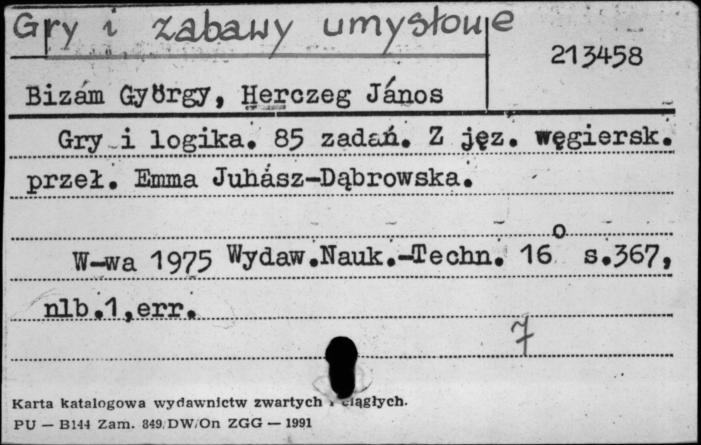 Gry i zabawy umysłowe
213458
Bizám György, Herczeg János
Gry i logika. 85 zadań. Z jęz. węgiersk.
przeł. Emma Juhász-Dąbrowska.
W-wa 1975 Wydaw.Nauk.-Techn. 16° s.367,
nlb.1,err.
7
Karta katalogowa wydawnictw zwartych i ciągłych.
PU — B144 Zam. 849/DW/On ZGG — 1991